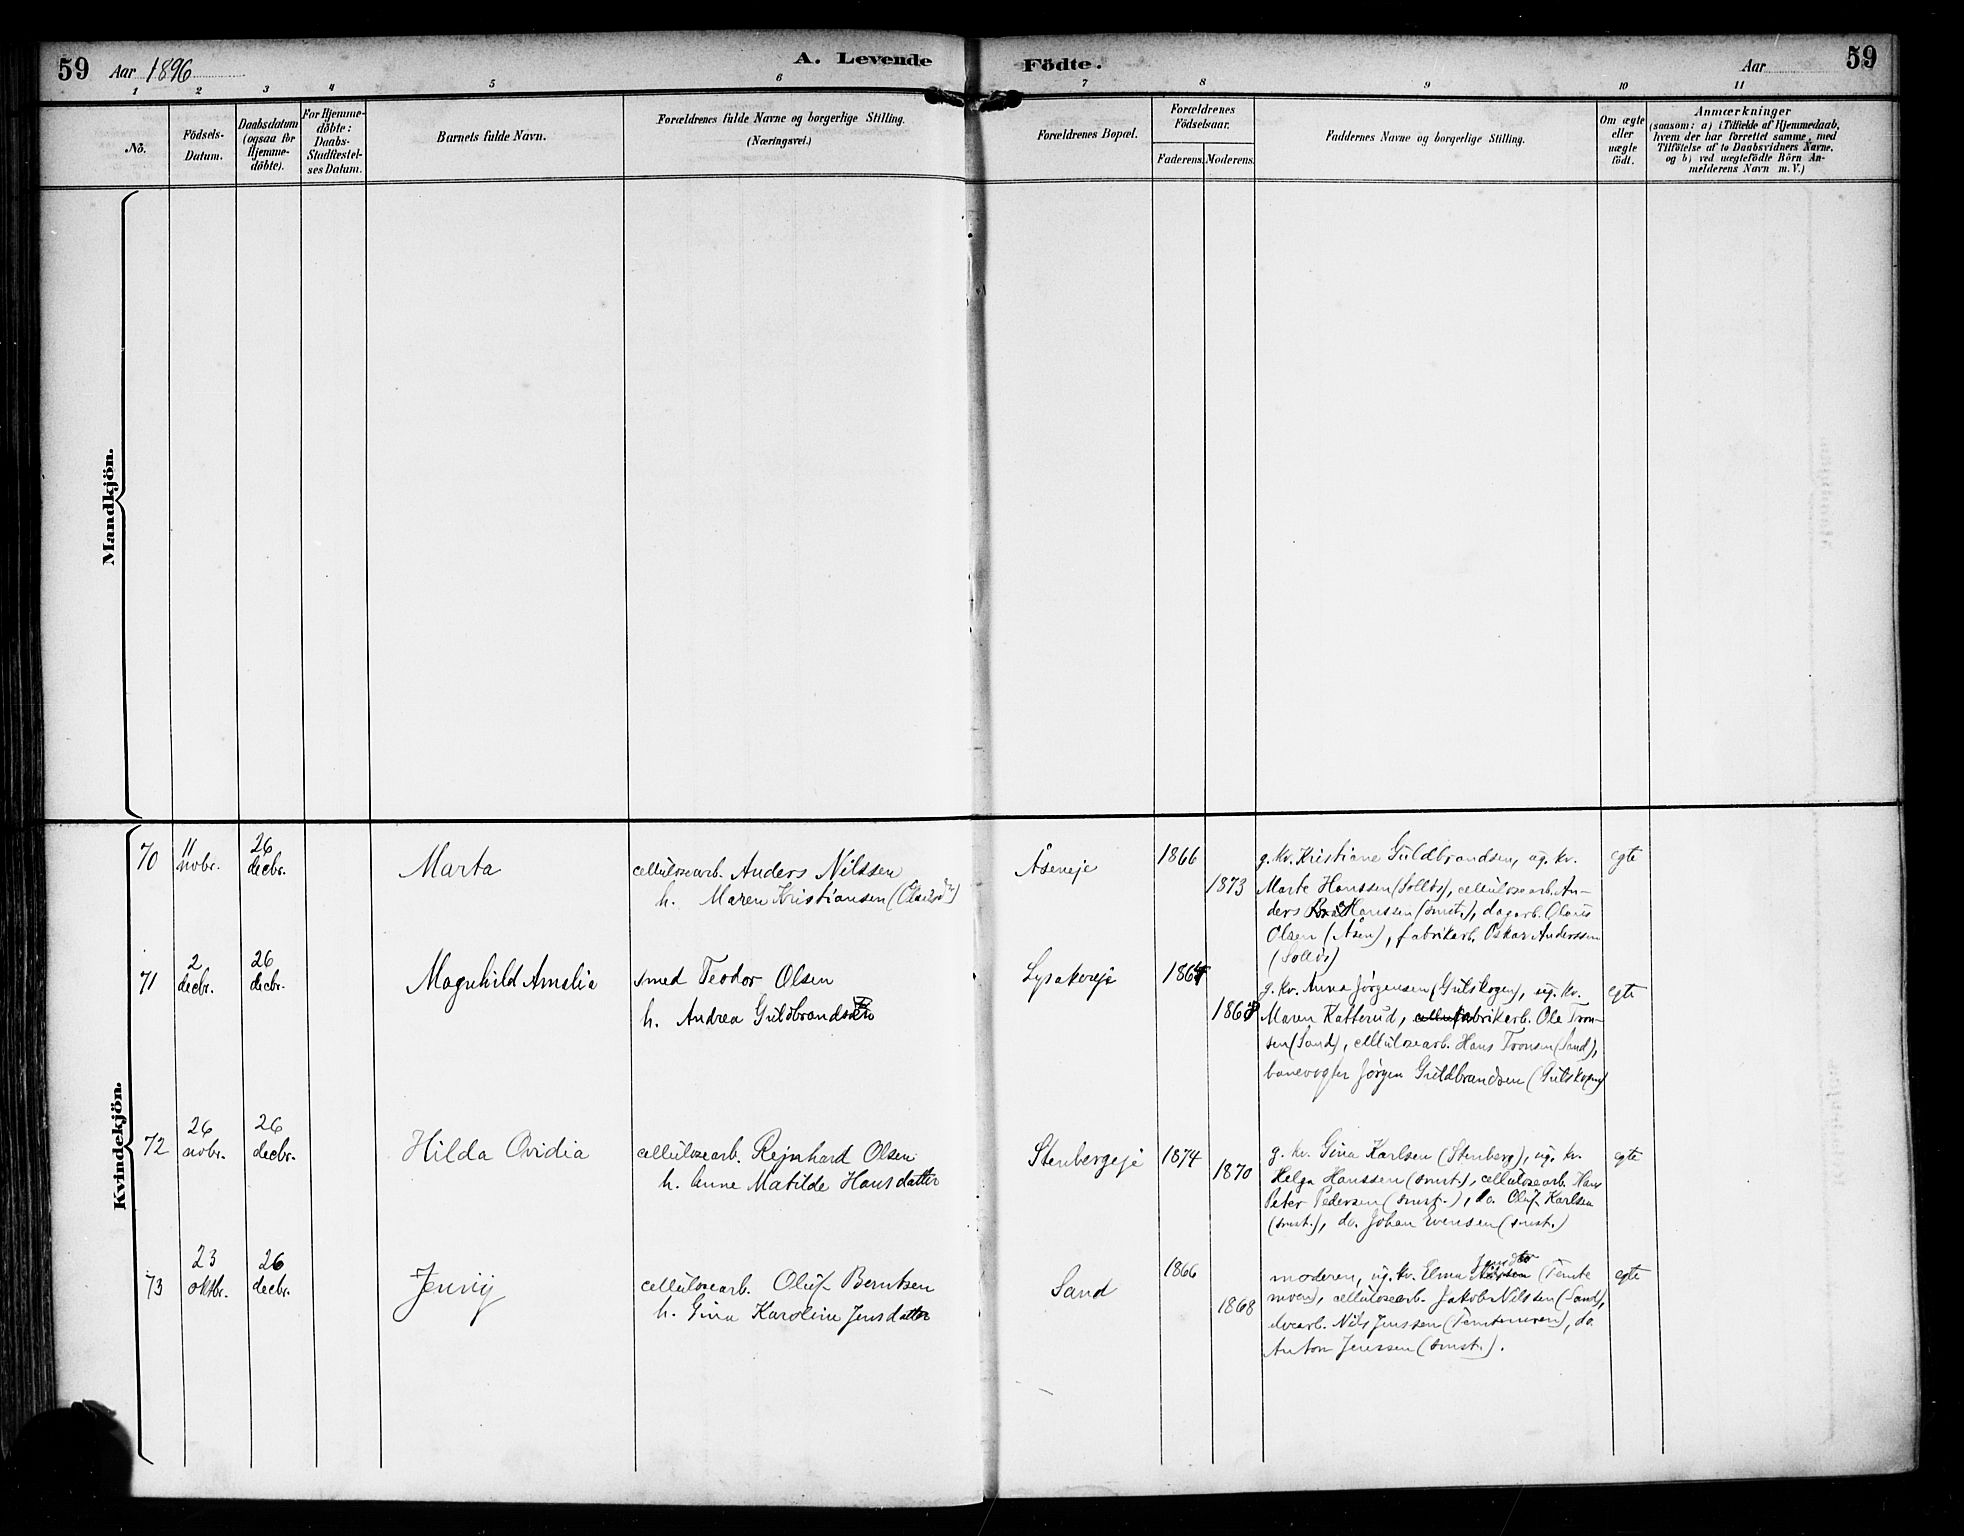 59 Aar 1896 A. Levende Födte. Aar 59
1 2 3 4 5 6 7 8 9 10 11
No.
Födsels-Datum.
Daabsdatum (ogsaa for Hjemme-döbte).
For Hjemme-döbte: Daabs-Stadfæstel-ses Datum.
Barnets fulde Navn.
Forældrenes fulde Navne og borgerlige Stilling.
(Næringsvei.)
Forældrenes Bopæl.
Forældrenes Födselsaar.
Faderens. Moderens.
Faddernes Navne og borgerlige Stilling.
Om ægte eller uægte födt.
Anmærkninger
(saasom: a) i Tilfælde af Hjemmedaab,
hvem der har forrettet samme, med
Tilföielse af to Daabsvidners Navne,
og b) ved uægtefödte Börn An-
melderens Navn m. V.)
Mandkjön.
Kvindekjön.
70 11 novbr. 26 decbr. Marta
cellulosearb. Anders Nilssen
h. Maren Kristiansen
Åseneje 1866 1873
g. kv. Kristiane Guldbrandsen, ug. kv.
Marte Hanssen (Solløs), cellulosearb. An-
ders Hanssen (smst.), dagarb. Olaus
Olsen (Åsen), fabrikarb. Oskar Anderssen
(Solløs)
egte
71 2 decbr. 26 decbr. Magnhild Amalia
smed Teodor Olsen
h. Andrea Guldbrandsen
Lysakereje 1864 1868
g. kv. Anna Jørgensen (Gulskogen), ug. kv.
Maren Katterud, fabrikarb. Ole Tron-
sen (Sand), cellulosearb. Hans Tronsen (Sand),
banevogter Jørgen Guldbrandsen (Gulskogen)
egte
72 26 novbr. 26 decbr. Hilda Ovidia
cellulosearb. Rejnhard Olsen
h. Anne Matilde Hansdatter
Stenbergeje 1874 1870
g. kv. Gina Karlsen (Stenberg), ug. kv.
Helga Hanssen (smst.), cellulosearb. Hans
Peter Pedersen (smst.), do. Oluf Karlsen
(smst.), do. Johan Evensen (smst.)
egte
73 23 oktbr. 26 decbr. Jenny
cellulosearb. Oluf Berntsen
h. Gina Karoline Jensdatter
Sand 1866 1868
moderen, ug. kv. Elma
cellulosearb. Jakob Nilssen (Sand),
Nils Jenssen, do.
Anton Jenssen (smst.).
egte